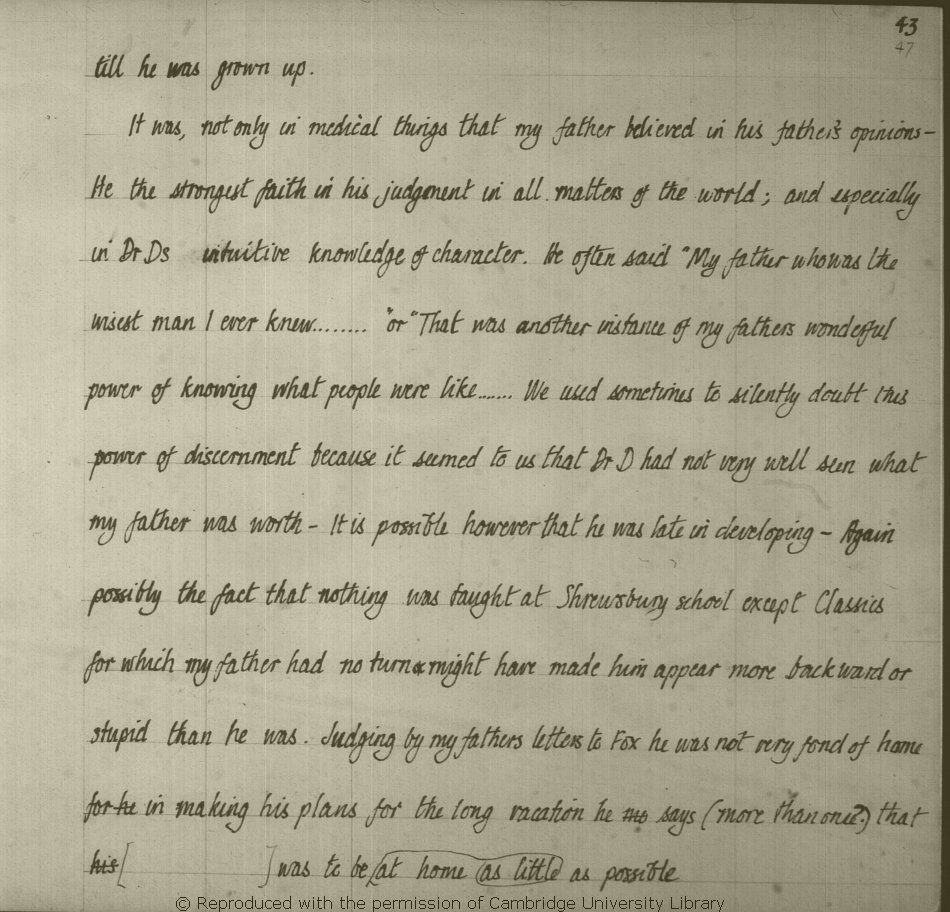 43
47
till he was grown up.
It was, not only in medical things that my father believed in his father's opinions –
He the strongest faith in his judgment in all matters of the world; and especially
in Dr Ds intuitive knowledge of character. He often said "My father who was the
wisest man I ever knew........ "or "That was another instance of my fathers wonderful
power of knowing what people were like....... We used sometimes to silently doubt this
power of discernment because it seemed to us that Dr D had not very well seen what
my father was worth – It is possible however that he was late in developing – Again
possibly the fact that nothing was taught at Shrewsbury school except Classics
for which my father had no turn & might have made him appear more backward or
stupid than he was. Judging by my fathers letters to Fox he was not very fond of home
for he in making his plans for the long vacation he says (more than once?) that
his [ ] was to be at home as little as possible
© Reproduced with the permission of Cambridge University Library